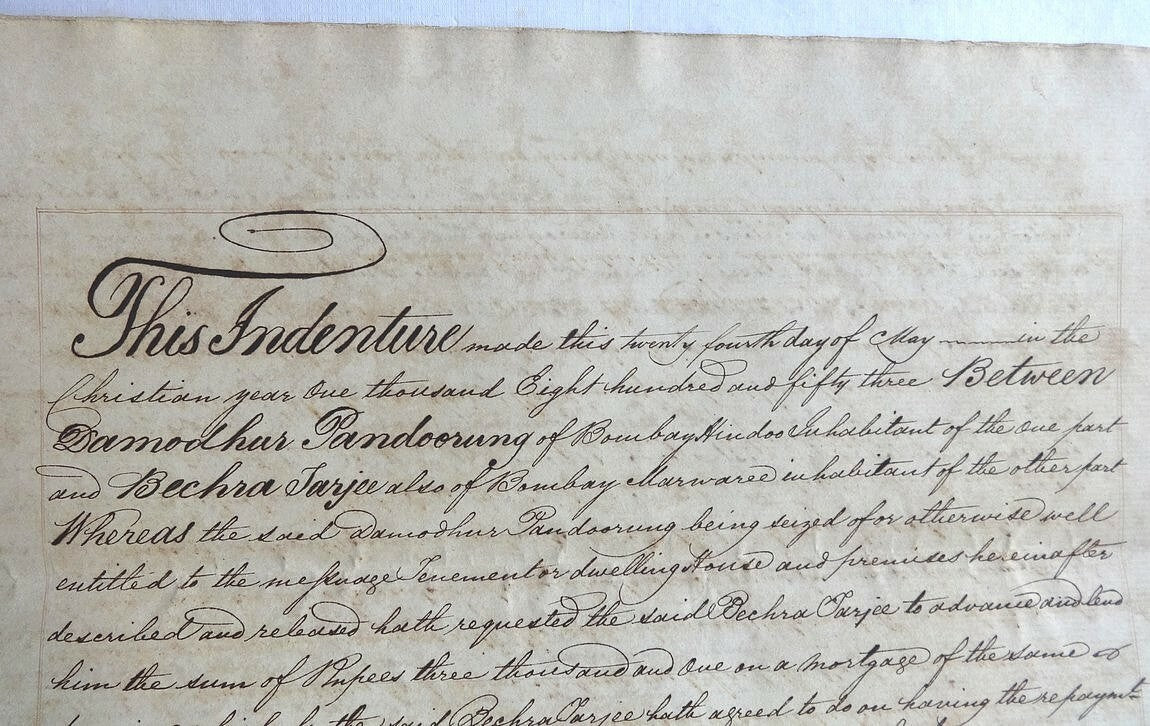 This Indenture made this twenty fourth day of May in the
Christian year One thousand Eight hundred and fifty three Between
Damodhur Pandoorung of Bombay Hindoo Inhabitant of the One part
and Bechra Tarjee also of Bombay Marwaree inhabitant of the other part
Whereas the said Damodhur Pandoorung being seized of or otherwise well
entitled to the messuage Tenement or dwelling House and premises hereinafter
described and released hath requested the said Bechra Tarjee to advance and lend
him the sum of Rupees three thousand and One on a mortgage of the same
the said Bechra Tarjee hath agreed to do on having the repaymt